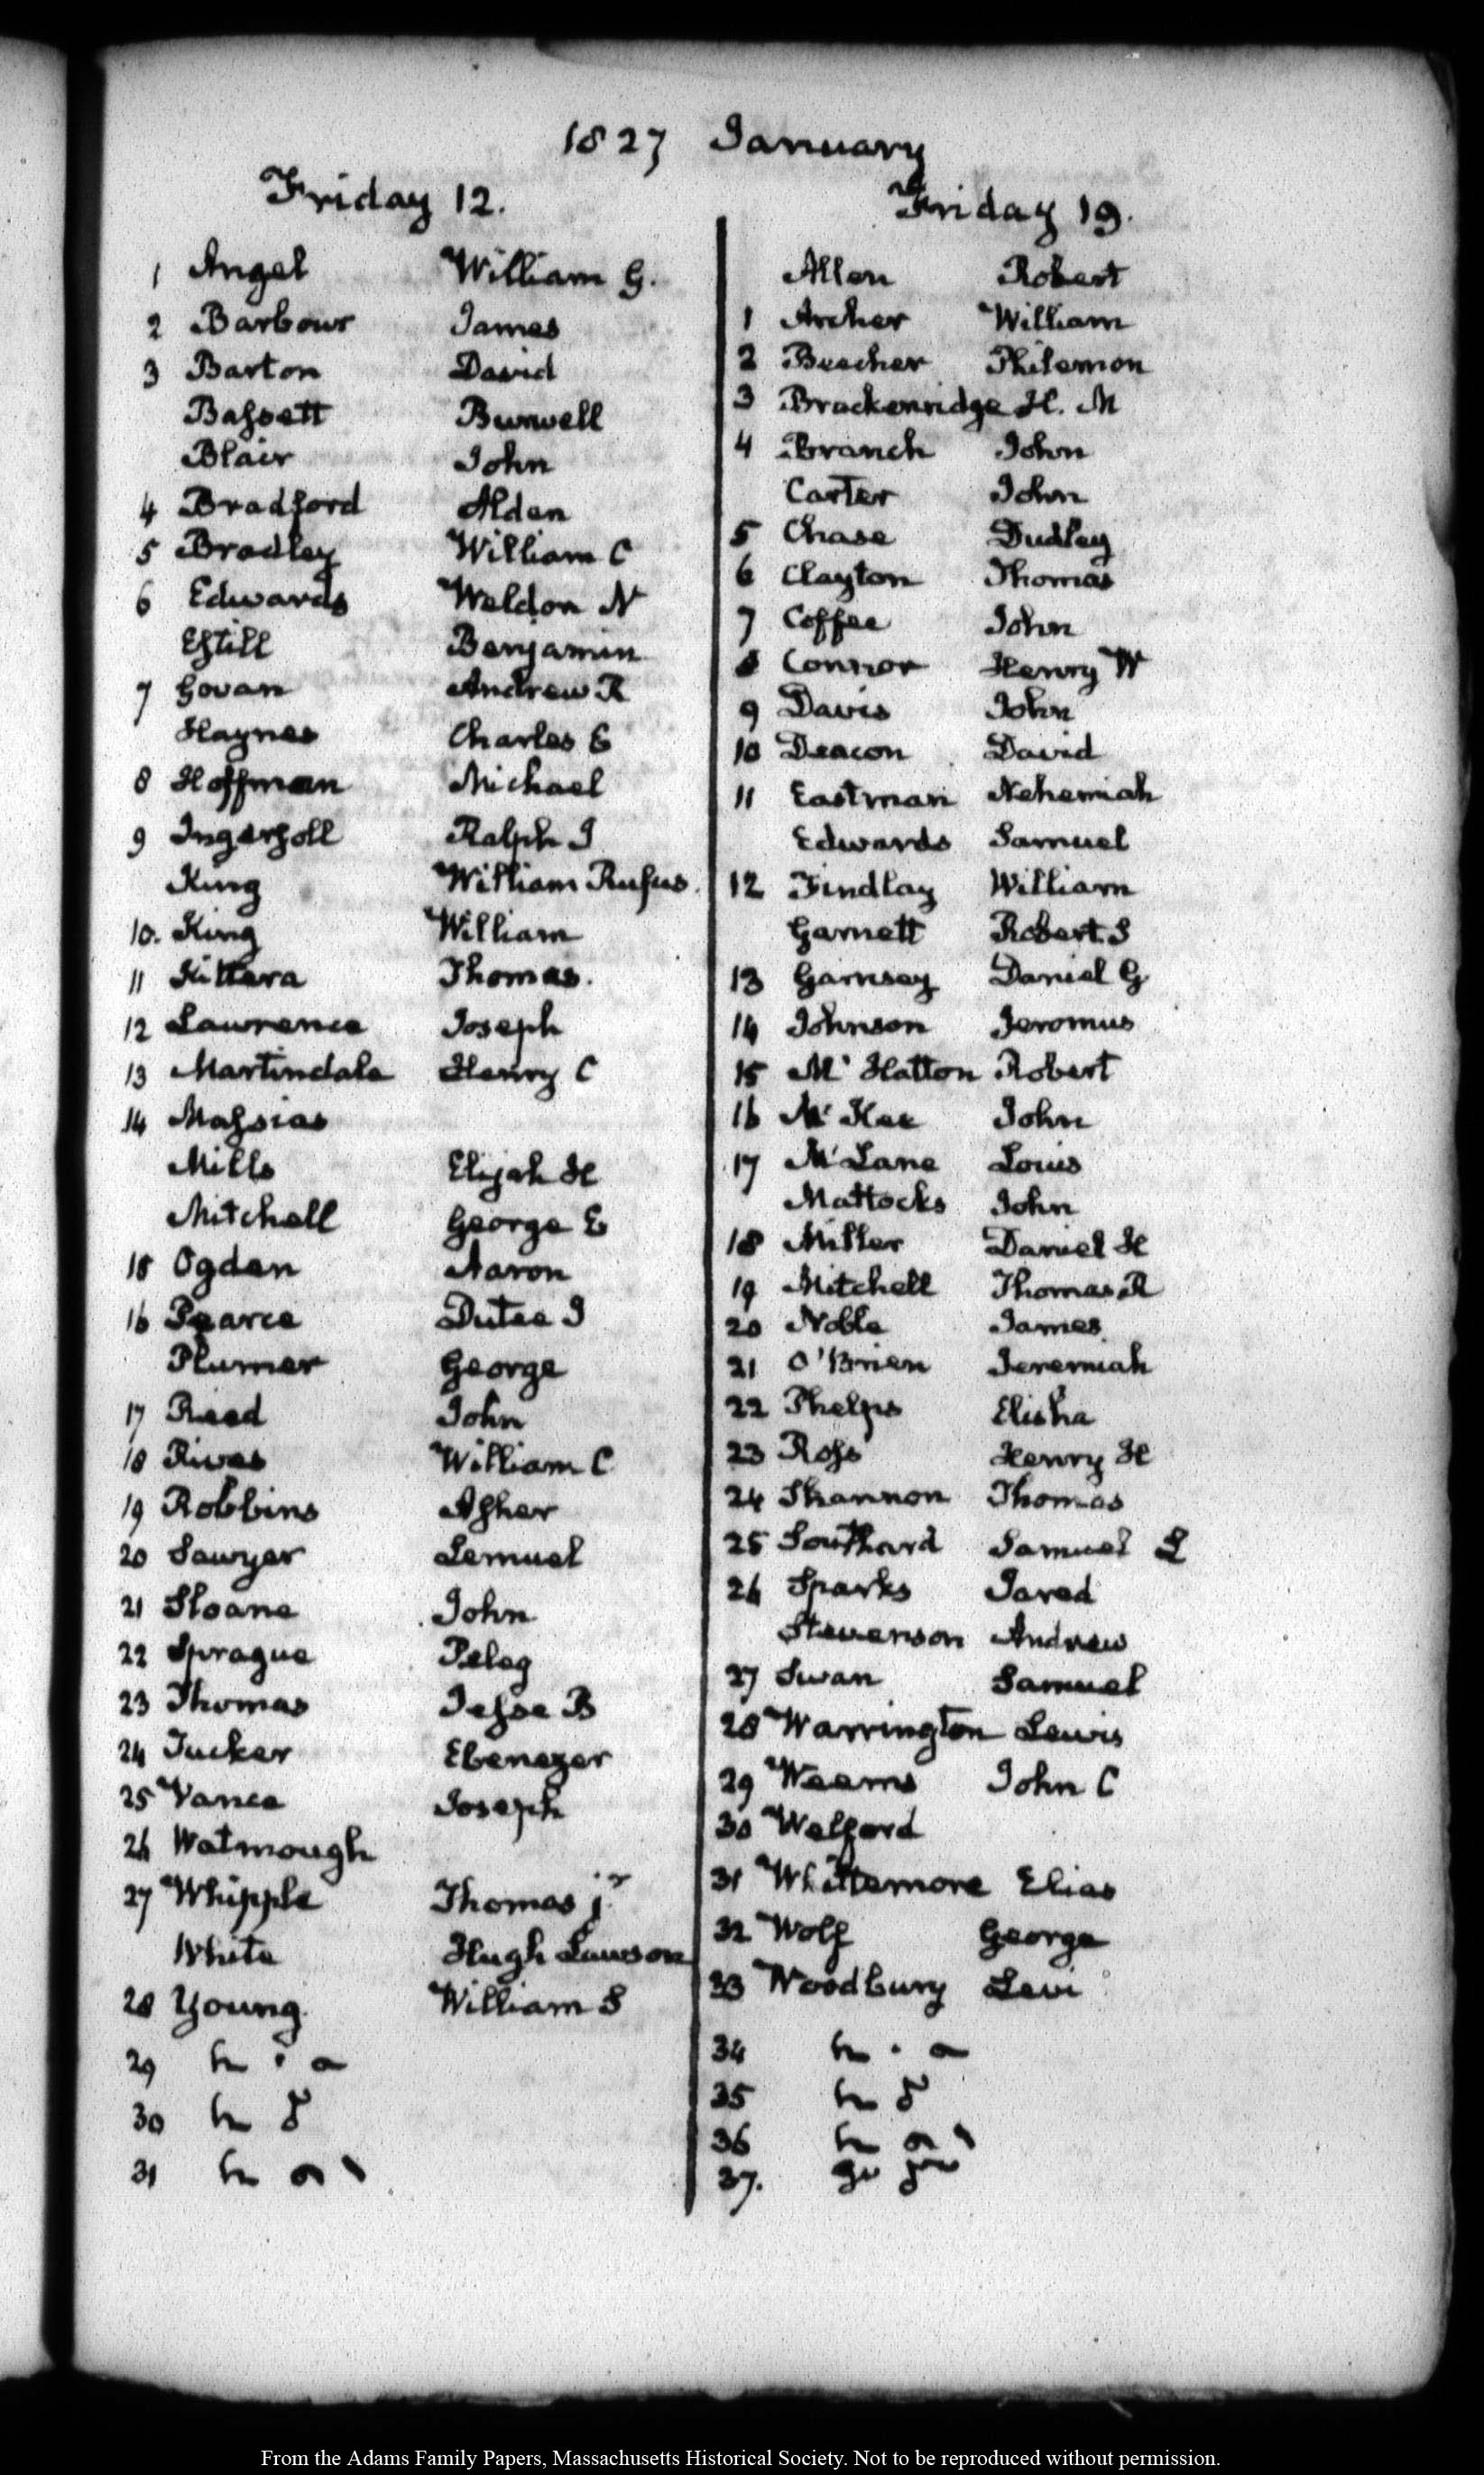 1827 January
Friday 12.
1 Angel William G.
2 Barbour James
3 Barton David
Baſsett Burwell
Blair John
4 Bradford Alden
5 Bradley William C
6 Edwards Weldon N
Eſtill Benjamin
7 Govan Andrew R
Haynes Charles E
8 Hoffman Michael
9 Ingerſoll Ralph I
King William Rufus
10. King William
11 Kittera Thomas.
12 Lawrence Joseph
13 Martindale Henry C
14 Maſsias
Mills Elijah H
Mitchell George E
15 Ogden Aaron
16 Pearce Dutee J
Plumer George
17 Reed John
18 Rives William C
19 Robbins Aſher
20 Sawyer Lemuel
21 Sloane John
22 Sprague Peleg
23 Thomas Jeſse B
24 Tucker Ebenezer
25 Vance Joseph
26 Watmough
27 Whipple Thomas jr.
White Hugh Lawson
28 Young William S
29
30
31
Friday 19.
Allen Robert
1 Archer William
2 Beecher Philemon
3 Brackenridge H. M
4 Branch John
Carter John
5 Chase Dudley
6 Clayton Thomas
7 Coffee John
8 Connor Henry W
9 Davis John
10 Deacon David
11 Eastman Nehemiah
Edwards Samuel
12 Findlay William
Garnett Robert S
13 Garnsey Daniel G
14 Johnson Jeromus
15 Mc Hatton Robert
16 Mc Kee John
17 McLane Louis
Mattocks John
18 Miller Daniel H
19 Mitchell Thomas R
20 Noble James
21 O'Brien Jeremiah
22 Phelps Elisha
23 Roſs Henry H
24 Shannon Thomas
25 Southard Samuel L
26 Sparks Jared
Stevenson Andrew
27 Swan Samuel
28 Warrington Lewis
29 Weems John C
30 Welford
31 Whittemore Elias
32 Wolf George
33 Woodbury Levi
34
35
36
37.
From the Adams Family Papers, Massachusetts Historical Society. Not to be reproduced without permission.